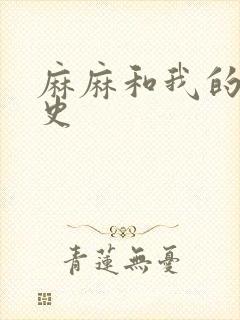 麻麻和我的
史
青蓮無憂